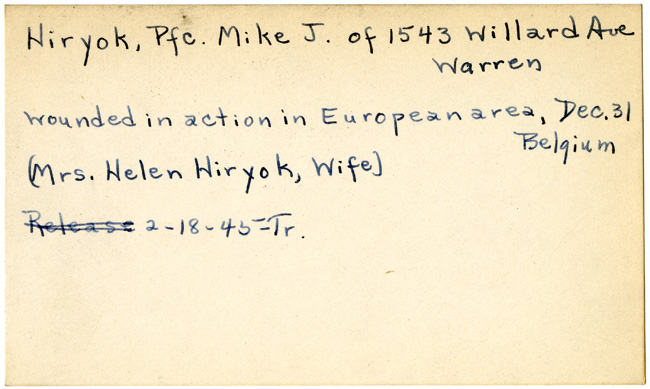 Hiryok, Pfc. Mike J. of 1543 Willard Ave
Warren
wounded in action in European area, Dec. 31
Belgium
(Mrs. Helen Hiryok, Wife)
Release 2-18-45-Tr.